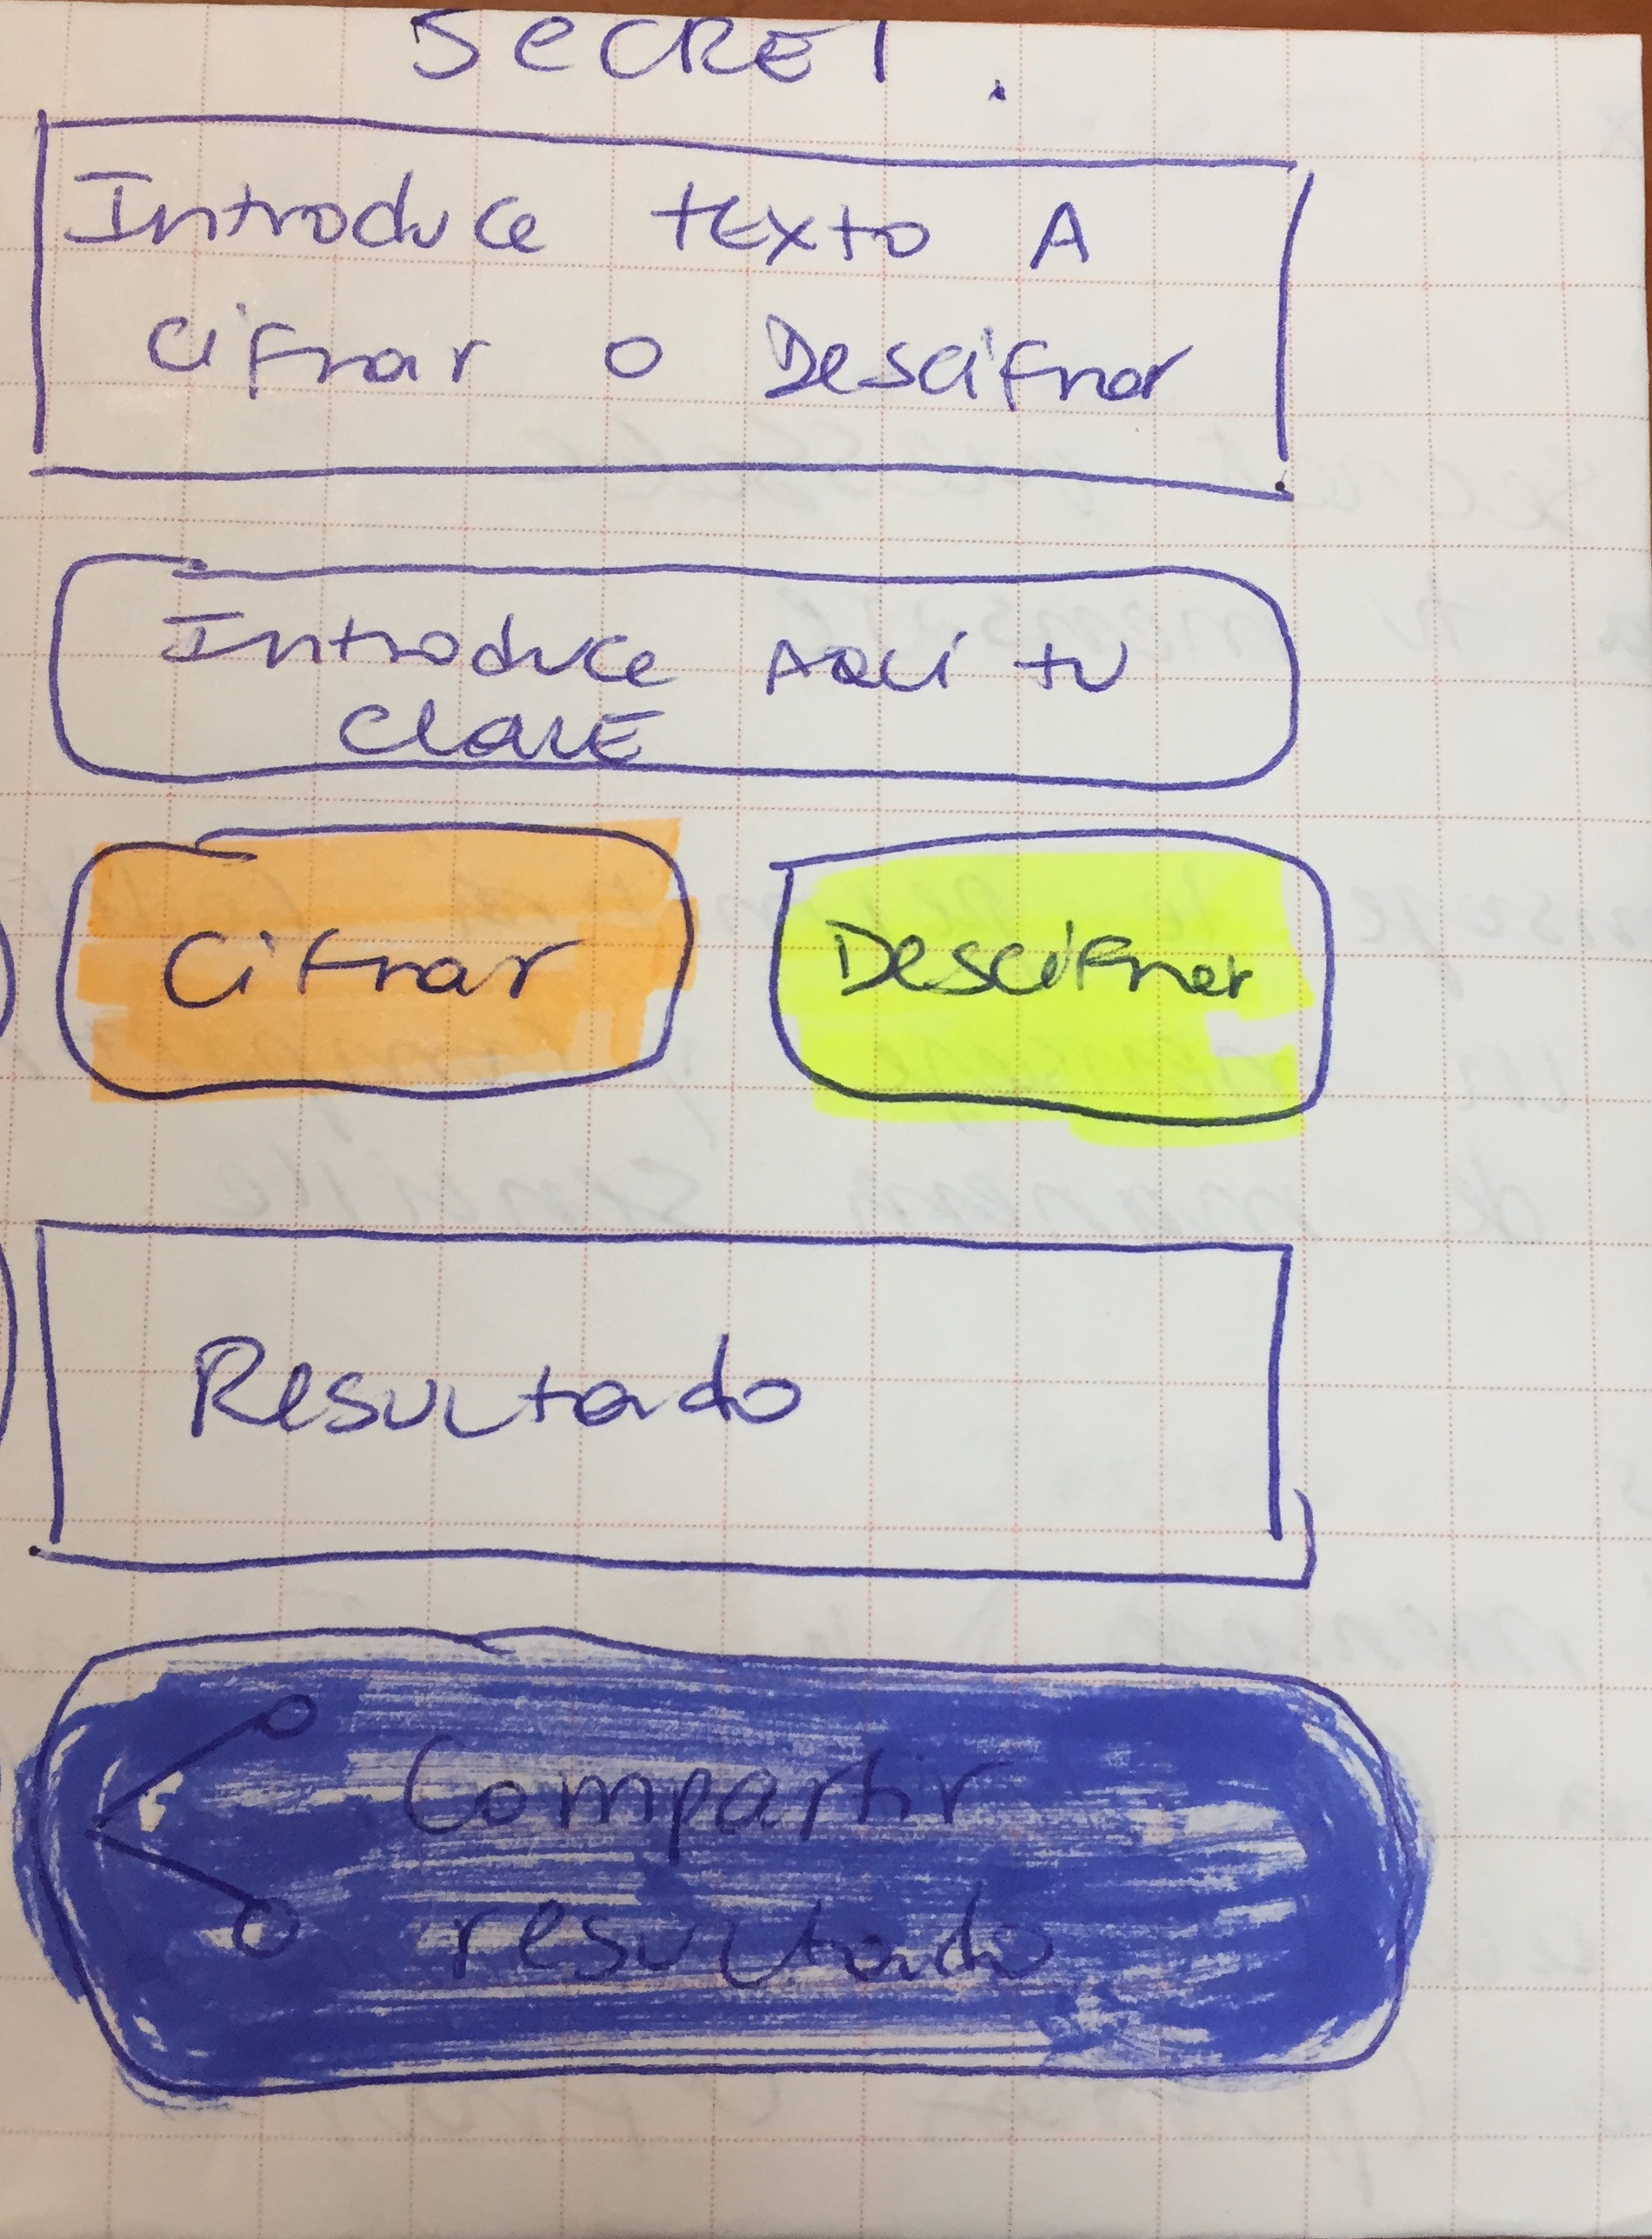 SECRET.
Introduce texto A
cifrar o Descifrar
Introduce AQUÍ tu
ClavE
Cifrar
Descifrar
Resultado
Compartir
resultado